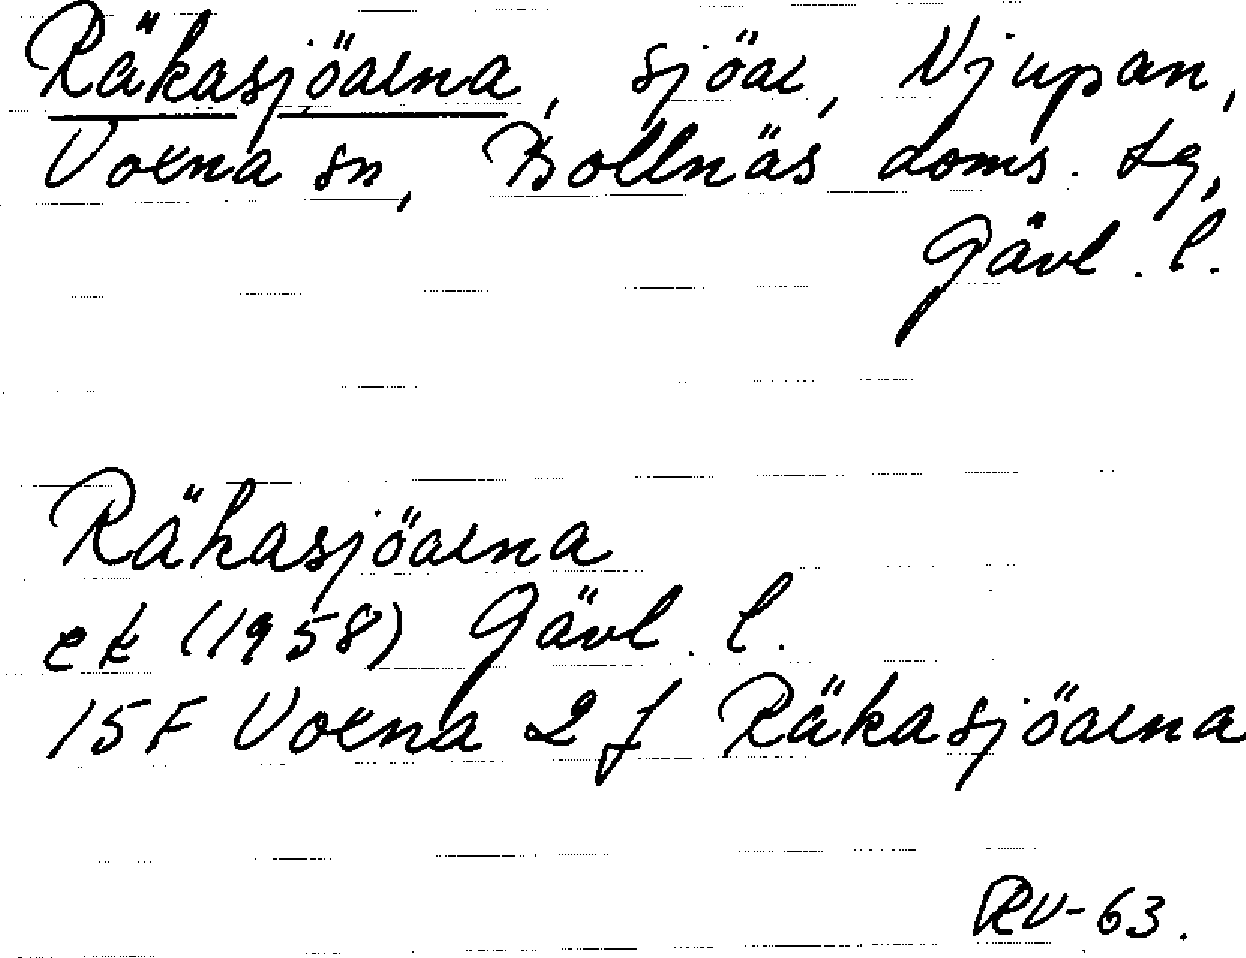 Räkasjöarna, sjöar, Njupan,
Voxna sn, Bollnäs doms. tg,
Gävl. l.
Räkasjöarna
ek (1958) Gävl. l.
15F Voxna 2 f Räkasjöarna
RV-63.